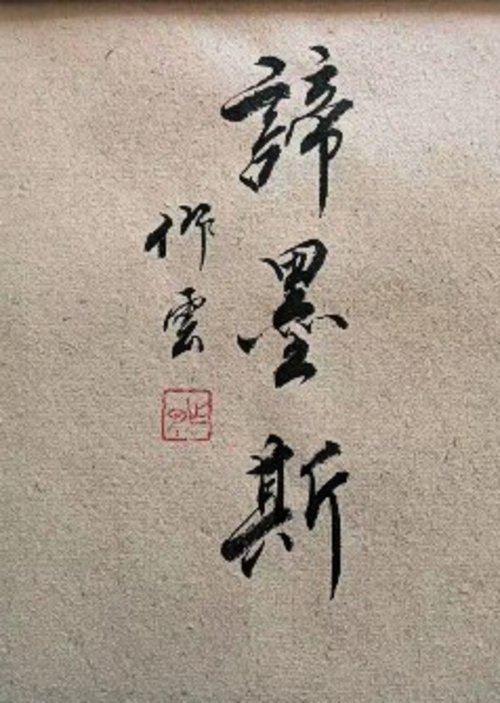 諦墨斯
仰雲